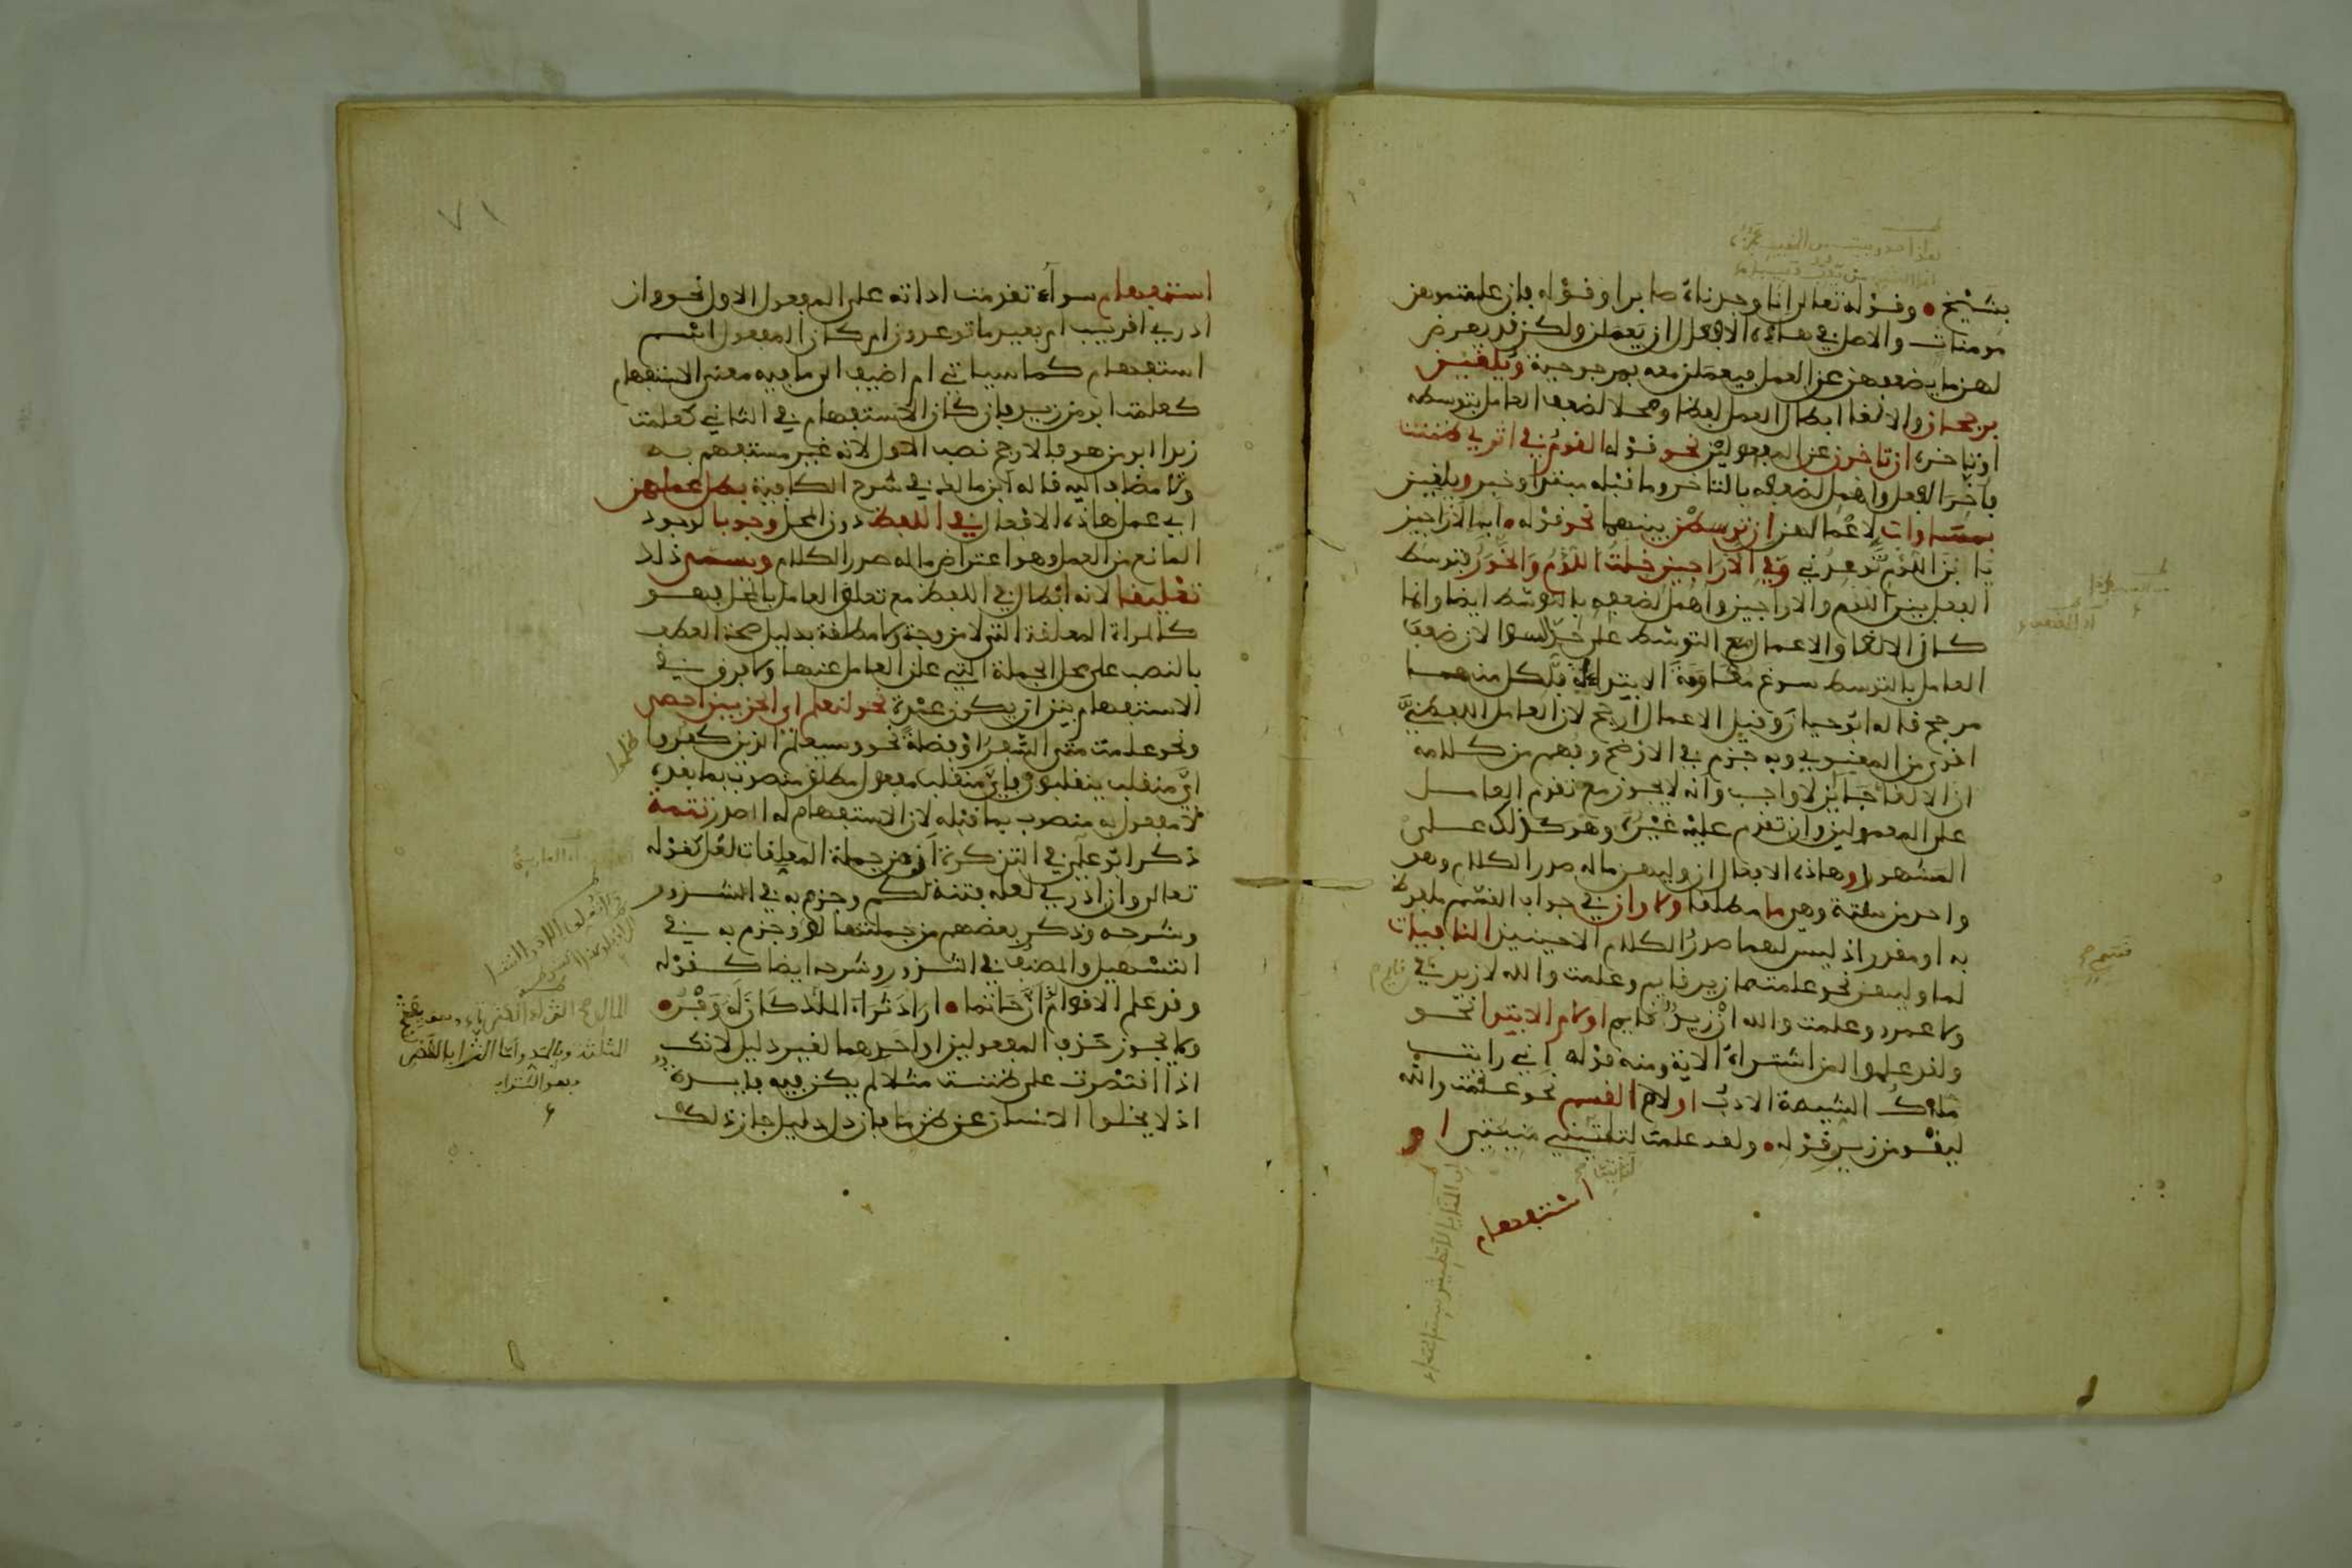 بشيخ • وقوله تعالى انا وجدناه صابرا وقوله فان علمتموهن
مومنات والاصل في هاذه الافعال ان يعملن ولكن قد يعرض
لهن ما يضعفهن عن العمل فيعملن معه بمرجوحية ويلغين
برجحان والالغا ابطال العمل لفظا ومحلا لضعف العامل بتوسطه
او تاخره ان تاخرن عن المفعولين نحو قوله القوم في اثري ظننت
فاخر الفعل واهمل لضعفه بالتاخر وما قبله مبتدا وخبر ويلغين
بمساوات لاعمالهن ان توسطن بينهما نحو قوله • ابالاراجيز
يا ابن اللؤم توعدني وفي الاراجيز خلت اللؤم والخور فتوسط
الفعل بين اللؤم والاراجيز واهمل لضعفه بالتوسط ايضا وانما
كان الالغا والاعمال مع التوسط على حد السوا لان ضعف
العامل بالتوسط سوغ مقاومة الابتداء له فلكل منهما
مرجح قاله ابو حيان وقيل الاعمال ارجح لان العامل اللفظي
اقوى من المعنوي وبه جزم في الاوضح وفهم من كلامه
ان الالغا جايز لا واجب وانه لا يجوز مع تقدم العامل
على المعمولين وان تقدم عليه غيره وهو كذلك على
المشهور وهاذه الافعال ان وليهن ما له صدر الكلام وهو
واحد من ستة وهو ما مطلقا ولا وان في جواب القسم ملفوظ
به او مقدر اذ ليس لهما صدر الكلام الا حينيذ النافيات
لما وليهن نحو علمت ما زيد قايم وعلمت والله لا زيد في
ولا عمرو وعلمت والله ان زيد قايم او لام الابتدا نحو
ولقد علموا لمن اشتراه الاية ومنه قوله اني رايت
ملاك الشيمة الادب او لام القسم نحو علمت والله
ليقومن زيد وقوله • ولقد علمت لتاتين منيتي او
استفهام
استفهام سواء تقدمت اداته على المفعول الاول نحو وان
ادري اقريب ام بعيد ما توعدون ام كان المفعول اسم
استفهام كما سياتي ام اضيف الى ما فيه معنى الاستفهام
كعلمت ابو من زيد فان كان الاستفهام في الثاني كعلمت
زيدا ابو من هو فالارجح نصب الاول لانه غير مستفهم به
ولا مضاف اليه قاله ابن مالك في شرح الكافية بطل عملهن
اي عمل هاذه الافعال في اللفظ دون المحل وجوبا لوجود
المانع من العمل وهو اعتراض ما له صدر الكلام ويسمى ذلك
تعليقا لانه ابطال في اللفظ مع تعلق العامل بالمحل فهو
كالمراة المعلقة التي لا مزوجة ولا مطلقة بدليل صحة العطف
بالنصب على محل الجملة التي علق العامل عنها ولا فرق في
الاستفهام بين ان يكون عمدة نحو لنعلم اي الحزبين احصى
ونحو علمت متى السفر او فضلة نحو وسيعلم الذين كفروا
ظلموا
اي منقلب ينقلبون فاي منقلب مفعول مطلق منصوب بما بعده
لا مفعول به منصوب بما قبله لان الاستفهام له الصدر تتمة
ذكر ابو علي في التذكرة ان من جملة المعلقات لعل كقوله
تعالى وان ادري لعله فتنة لكم وجزم به في الشذور
وشرحه وذكر بعضهم من جملتها لو وجزم به في
التسهيل والمصنف في الشذور وشرحه ايضا كقوله
وقد علم الاقوام لو ان حاتما • اراد ثراء المال كان له وفر •
ولا يجوز حذف المفعولين او احدهما لغير دليل لانك
اذا اقتصرت على ظننت مثلا لم يكن فيه فايدة
اذ لا يخلوا الانسان عن ظن ما فان دل دليل جاز ذلك
٧١